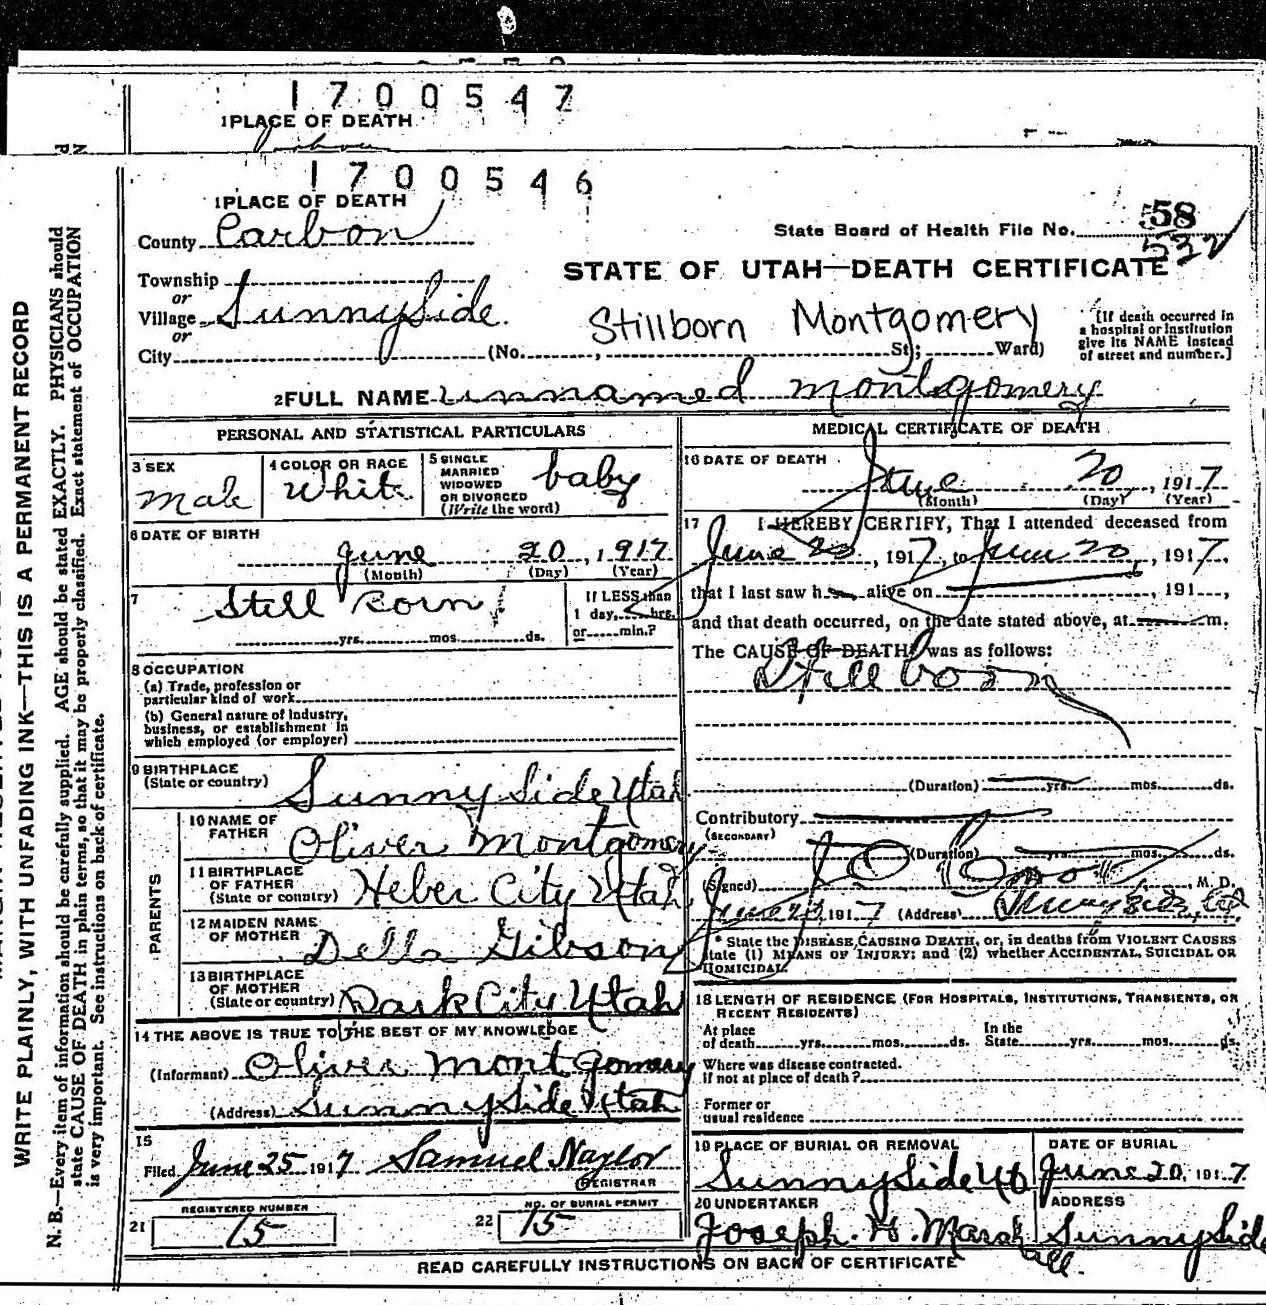 1700547
1 PLACE OF DEATH
1700546
1 PLACE OF DEATH
County Carbon
State Board of Health File No. 58
532
Township
or
Village SunnySide
or
City (No. , St; Ward)
STATE OF UTAH—DEATH CERTIFICATE
Stillborn Montgomery
[If death occurred in a hospital or institution give its NAME instead of street and number.]
2 FULL NAME unnamed montgomery
PERSONAL AND STATISTICAL PARTICULARS
3 SEX Male
4 COLOR OR RACE White
5 SINGLE MARRIED WIDOWED OR DIVORCED (Write the word) baby
6 DATE OF BIRTH
June 20, 1917
(Month) (Day) (Year)
7 Still born
yrs. mos. ds.
If LESS than 1 day, hrs. or min.?
8 OCCUPATION
(a) Trade, profession or particular kind of work
(b) General nature of industry, business, or establishment in which employed (or employer)
9 BIRTHPLACE (State or country) SunnySide Utah
PARENTS
10 NAME OF FATHER Oliver Montgomery
11 BIRTHPLACE OF FATHER (State or country) Heber City Utah
12 MAIDEN NAME OF MOTHER Della Gibson
13 BIRTHPLACE OF MOTHER (State or country) Park City Utah
14 THE ABOVE IS TRUE TO THE BEST OF MY KNOWLEDGE
(Informant) Oliver Montgomery
(Address) SunnySide Utah
15
Filed June 25 1917 Samuel Naylor
REGISTRAR
REGISTERED NUMBER
21 15
NO. OF BURIAL PERMIT
22 15
MEDICAL CERTIFICATE OF DEATH
16 DATE OF DEATH
June 20, 1917
(Month) (Day) (Year)
17 I HEREBY CERTIFY, That I attended deceased from
June 20, 1917, to June 20, 1917,
that I last saw h alive on , 191 ,
and that death occurred, on the date stated above, at m.
The CAUSE OF DEATH* was as follows:
Still born
(Duration) yrs. mos. ds.
Contributory
(SECONDARY)
(Duration) yrs. mos. ds.
(Signed) , M. D.
June 20, 1917 (Address)
* State the DISEASE CAUSING DEATH, or, in deaths from VIOLENT CAUSES
state (1) MEANS OF INJURY; and (2) whether ACCIDENTAL, SUICIDAL OR
HOMICIDAL.
18 LENGTH OF RESIDENCE (FOR HOSPITALS, INSTITUTIONS, TRANSIENTS, OR RECENT RESIDENTS)
At place of death yrs. mos. ds. In the State yrs. mos. ds.
Where was disease contracted, if not at place of death?
Former or usual residence
19 PLACE OF BURIAL OR REMOVAL
SunnySide Ut
DATE OF BURIAL
June 20, 1917
20 UNDERTAKER
Joseph. H. Marshall.
ADDRESS
SunnySide
READ CAREFULLY INSTRUCTIONS ON BACK OF CERTIFICATE
WRITE PLAINLY, WITH UNFADING INK—THIS IS A PERMANENT RECORD
N. B.—Every item of information should be carefully supplied. AGE should be stated EXACTLY. PHYSICIANS should
state CAUSE OF DEATH in plain terms, so that it may be properly classified. Exact statement of OCCUPATION
is very important. See instructions on back of certificate.